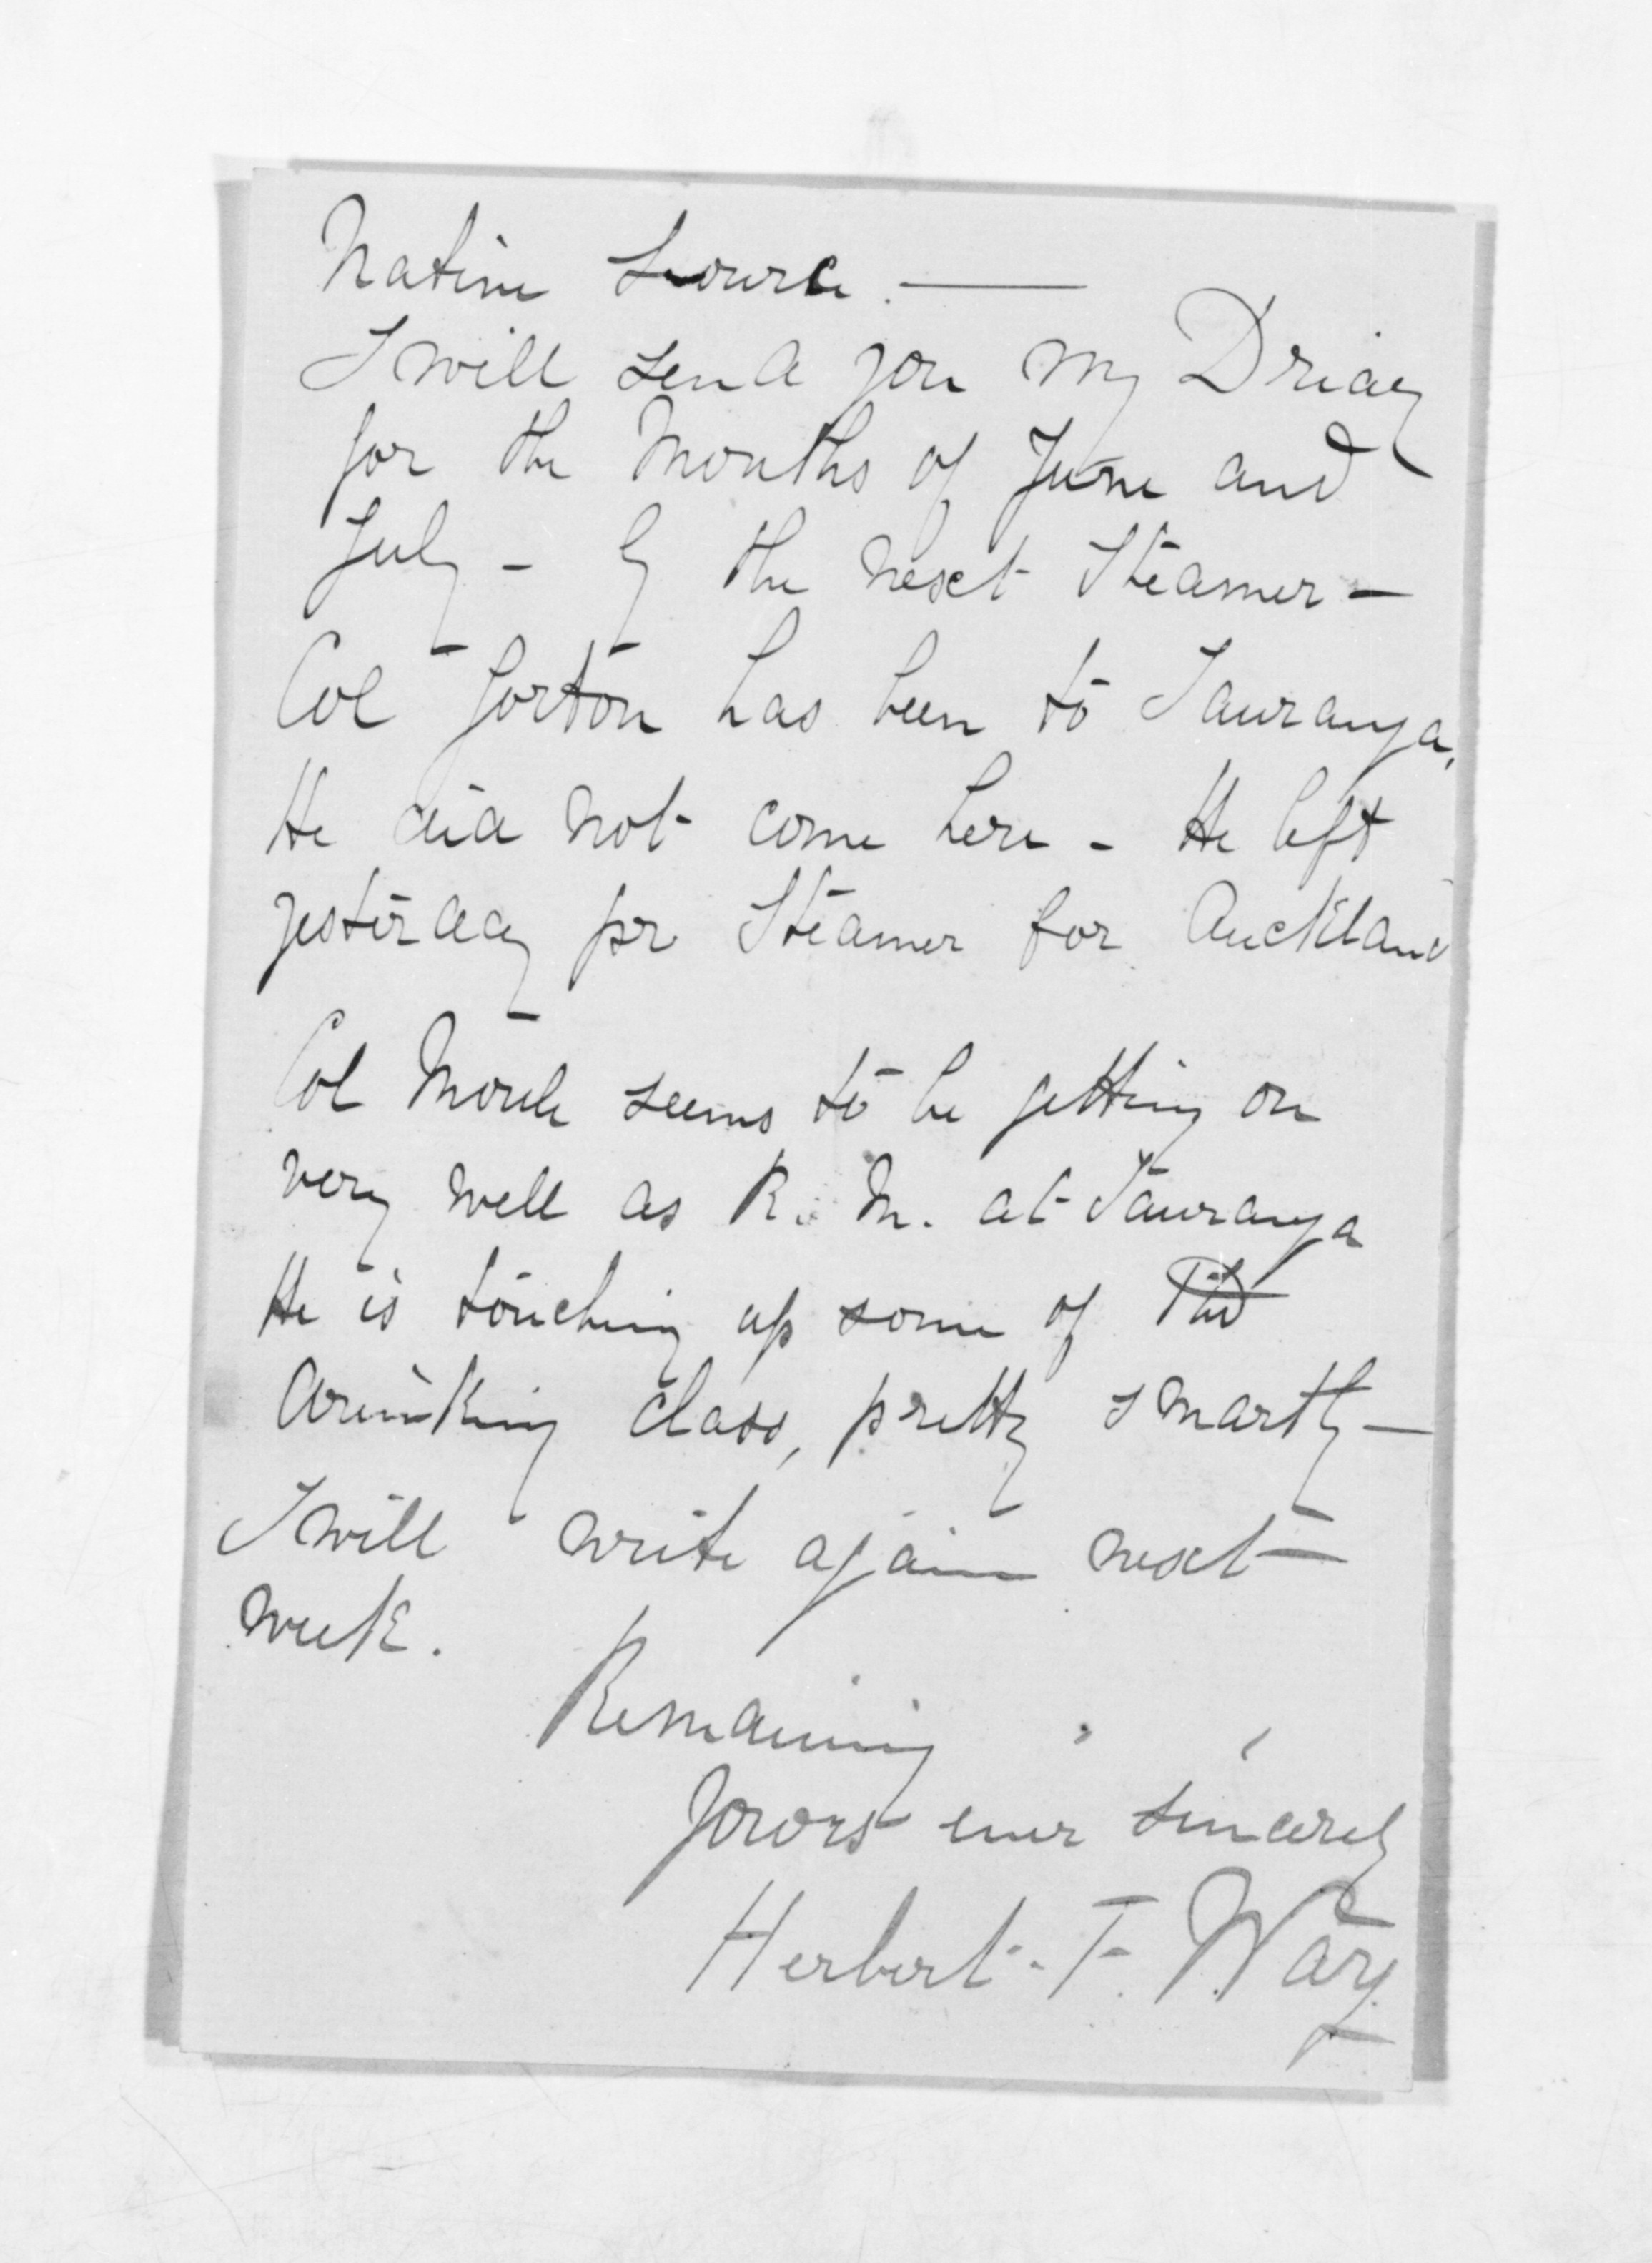 Native source. —
I will send you my Driay
for the Months of June and
July - by the next Steamer -
Col Gorton has been to Tauranga,
He did not come here - He left
yesterday pr Steamer for Auckland
Col Moule seems to be getting on
very well as R. M. at Tauranga
He is touching up some of the
drinking class, pretty smartly -
I will write again next
week.
Remaining
Yours ever sincerely
Herbert. F. Way